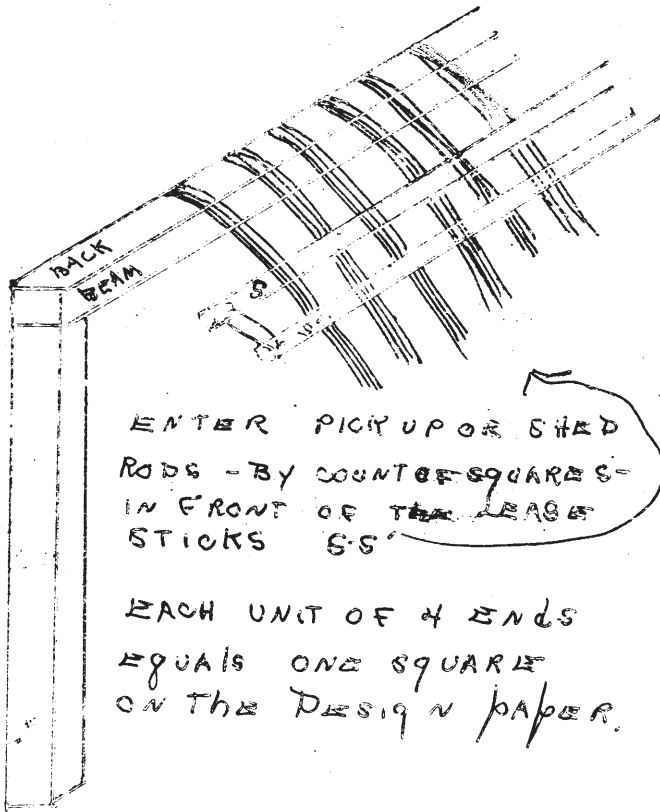 BACK
BEAM
S
ENTER PICK UP OR SHED
RODS - BY COUNT OF SQUARES -
IN FRONT OF THE LEASE
STICKS S-S'
EACH UNIT OF 4 ENdS
EQUAlS ONE SQUARE
ON ThE DESIGN pApER.